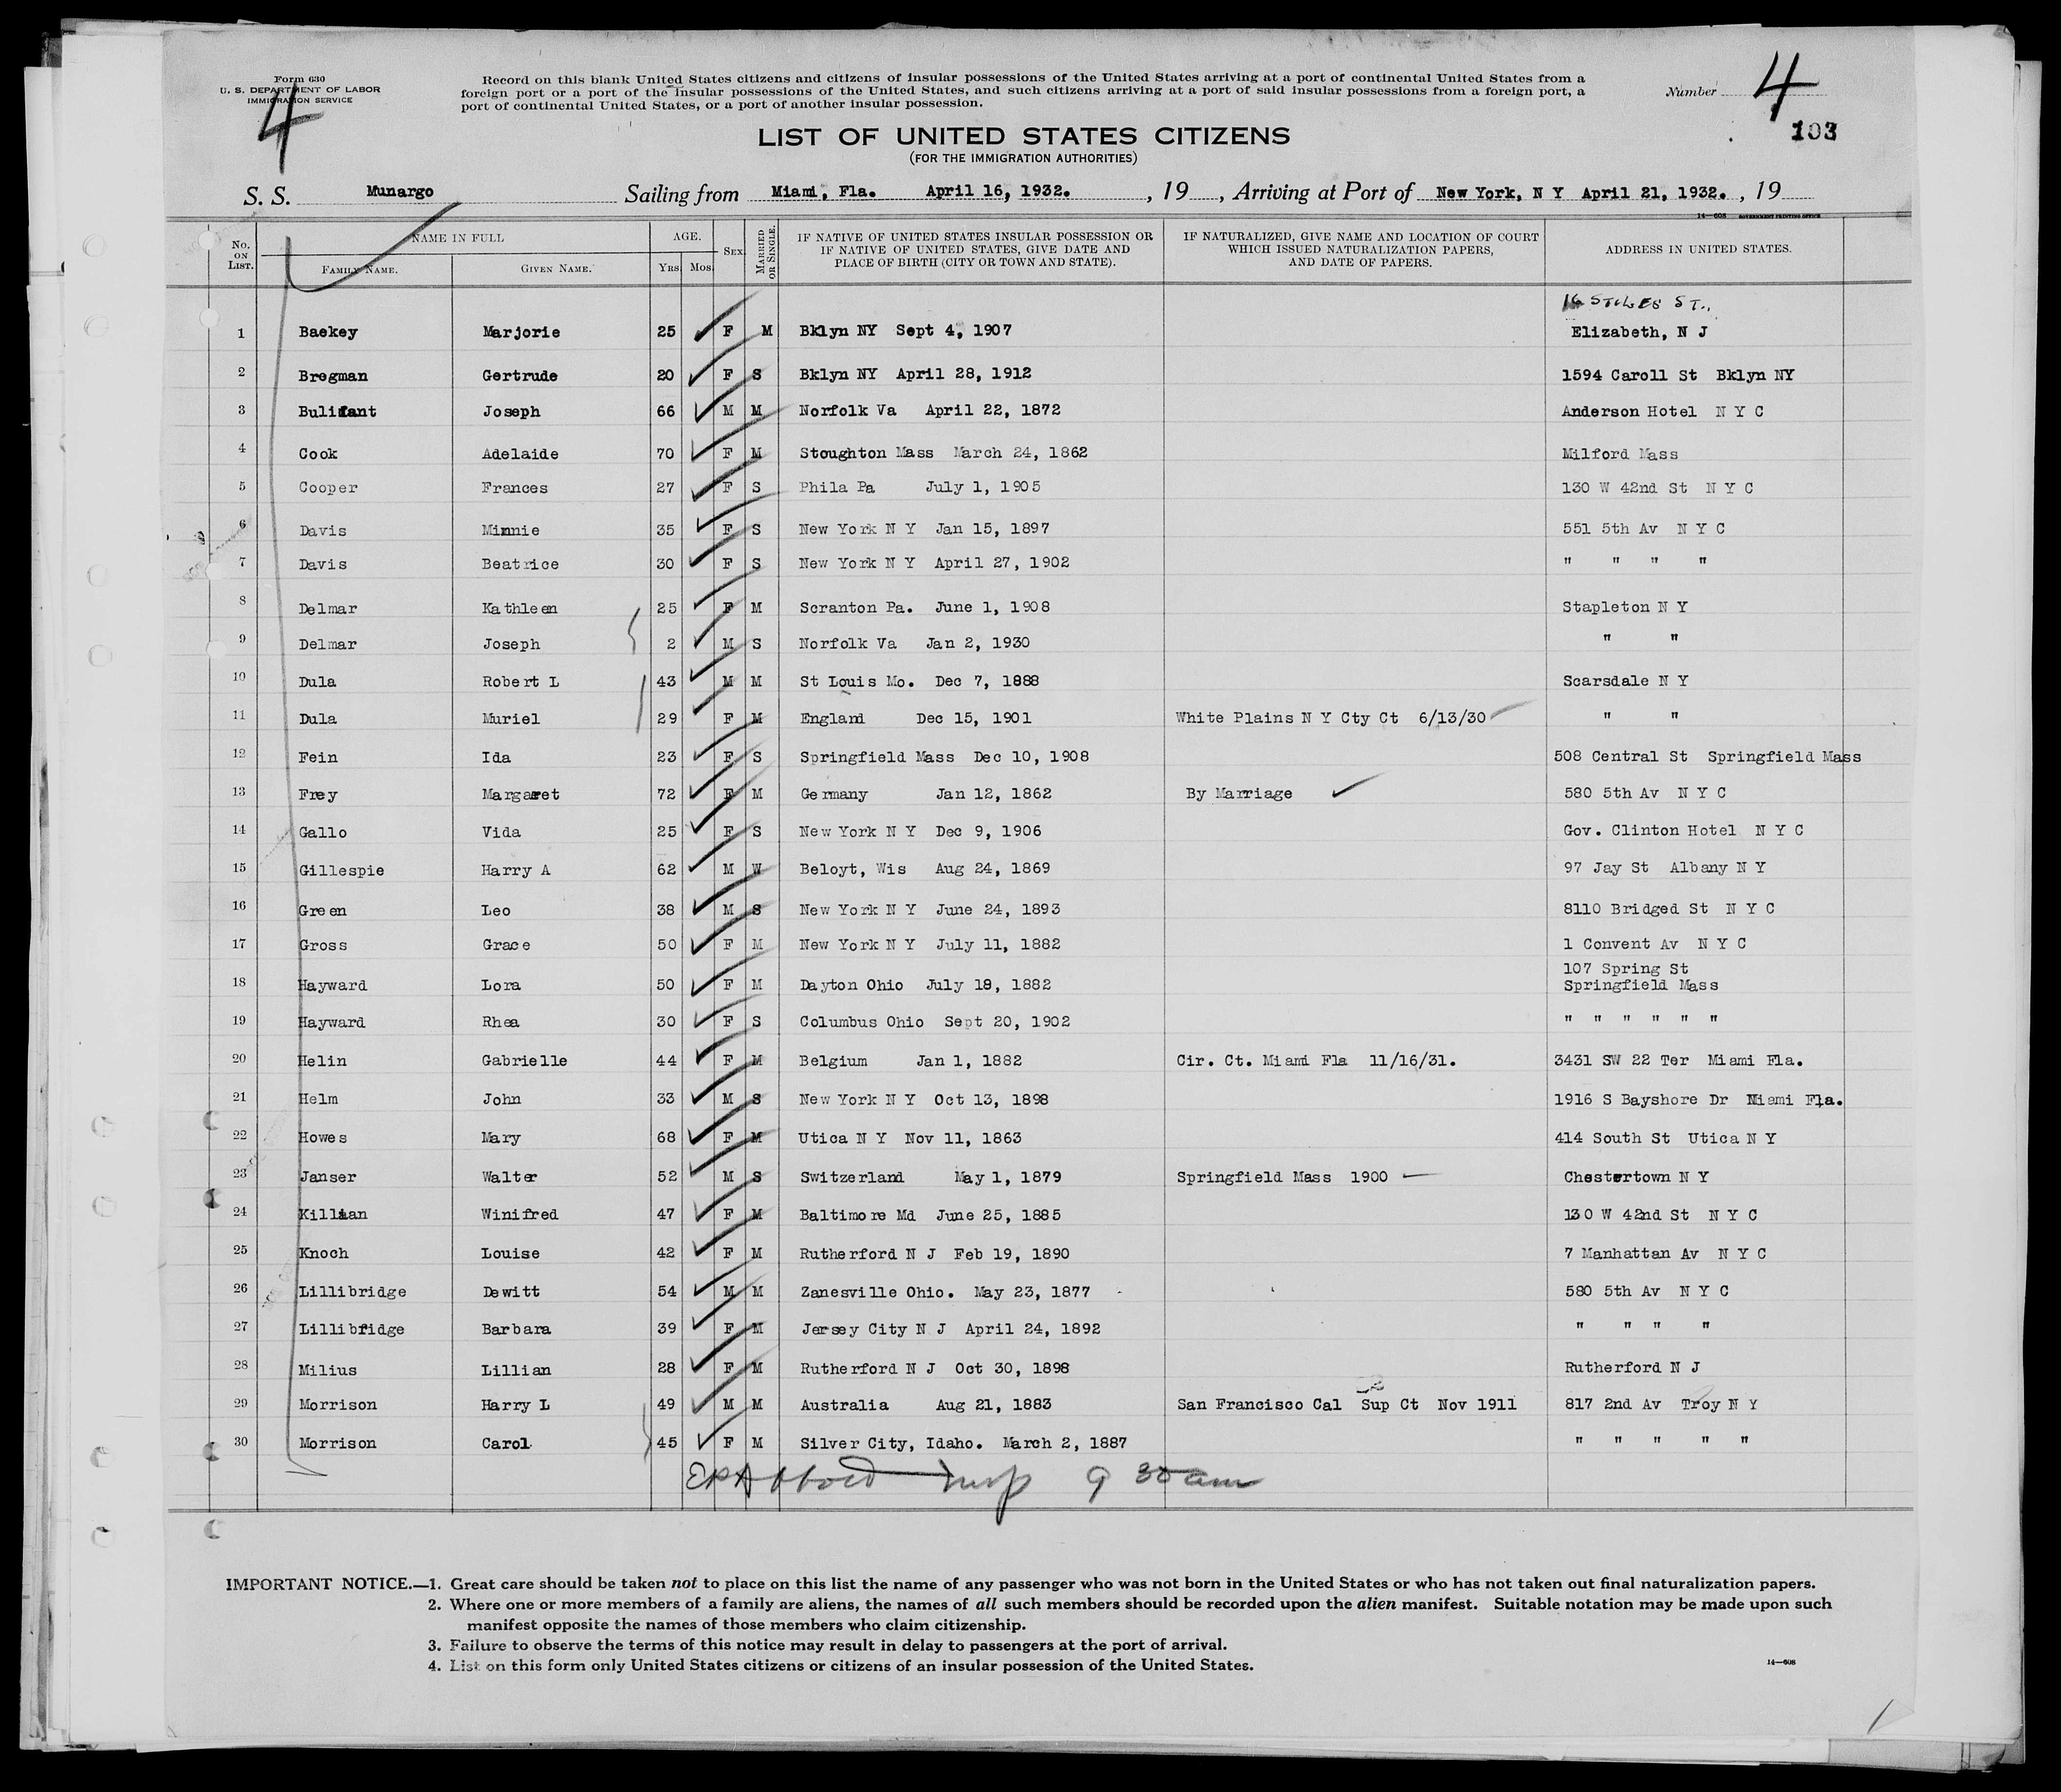 Form 630
U. S. DEPARTMENT OF LABOR
IMMIGRATION SERVICE
4
Record on this blank United States citizens and citizens of insular possessions of the United States arriving at a port of continental United States from a
foreign port or a port of the insular possessions of the United States, and such citizens arriving at a port of said insular possessions from a foreign port, a
port of continental United States, or a port of another insular possession.
Number 4
103
LIST OF UNITED STATES CITIZENS
(FOR THE IMMIGRATION AUTHORITIES)
S. S. Munargo Sailing from Miami, Fla. April 16, 1932. , 19 , Arriving at Port of New York, N Y April 21, 1932. , 19
14—608 GOVERNMENT PRINTING OFFICE
No. ON LIST. NAME IN FULL FAMILY NAME. GIVEN NAME. AGE. YRS. MOS. SEX MARRIED OR SINGLE. IF NATIVE OF UNITED STATES INSULAR POSSESSION OR IF NATIVE OF UNITED STATES, GIVE DATE AND PLACE OF BIRTH (CITY OR TOWN AND STATE). IF NATURALIZED, GIVE NAME AND LOCATION OF COURT WHICH ISSUED NATURALIZATION PAPERS, AND DATE OF PAPERS. ADDRESS IN UNITED STATES.
16 STILES ST.,
1 Backey Marjorie 25 F M Bklyn NY Sept 4, 1907 Elizabeth, N J
2 Bregman Gertrude 20 F S Bklyn NY April 28, 1912 1594 Caroll St Bklyn NY
3 Bulifant Joseph 66 M M Norfolk Va April 22, 1872 Anderson Hotel N Y C
4 Cook Adelaide 70 F M Stoughton Mass March 24, 1862 Milford Mass
5 Cooper Frances 27 F S Phila Pa July 1, 1905 130 W 42nd St N Y C
6 Davis Minnie 35 F S New York N Y Jan 15, 1897 551 5th Av N Y C
7 Davis Beatrice 30 F S New York N Y April 27, 1902 " " " "
8 Delmar Kathleen 25 F M Scranton Pa. June 1, 1908 Stapleton N Y
9 Delmar Joseph 2 M S Norfolk Va Jan 2, 1930 " "
10 Dula Robert L 43 M M St Louis Mo. Dec 7, 1888 Scarsdale N Y
11 Dula Muriel 29 F M England Dec 15, 1901 White Plains N Y Cty Ct 6/13/30 " "
12 Fein Ida 23 F S Springfield Mass Dec 10, 1908 508 Central St Springfield Mass
13 Frey Margaret 72 F M Germany Jan 12, 1862 By Marriage 580 5th Av N Y C
14 Gallo Vida 25 F S New York N Y Dec 9, 1906 Gov. Clinton Hotel N Y C
15 Gillespie Harry A 62 M W Beloyt, Wis Aug 24, 1869 97 Jay St Albany N Y
16 Green Leo 38 M S New York N Y June 24, 1893 8110 Bridged St N Y C
17 Gross Grace 50 F M New York N Y July 11, 1882 1 Convent Av N Y C
107 Spring St
18 Hayward Lora 50 F M Dayton Ohio July 18, 1882 Springfield Mass
19 Hayward Rhea 30 F S Columbus Ohio Sept 20, 1902 " " " " " "
20 Helin Gabrielle 44 F M Belgium Jan 1, 1882 Cir. Ct. Miami Fla 11/16/31. 3431 SW 22 Ter Miami Fla.
21 Helm John 33 M S New York N Y Oct 13, 1898 1916 S Bayshore Dr Miami Fla.
22 Howes Mary 68 F M Utica N Y Nov 11, 1863 414 South St Utica N Y
23 Janser Walter 52 M S Switzerland May 1, 1879 Springfield Mass 1900 Chestertown N Y
24 Killian Winifred 47 F M Baltimore Md June 25, 1885 130 W 42nd St N Y C
25 Knoch Louise 42 F M Rutherford N J Feb 19, 1890 7 Manhattan Av N Y C
26 Lillibridge Dewitt 54 M M Zanesville Ohio. May 23, 1877 580 5th Av N Y C
27 Lillibfidge Barbara 39 F M Jersey City N J April 24, 1892 " " " "
28 Milius Lillian 28 F M Rutherford N J Oct 30, 1898 Rutherford N J
29 Morrison Harry L 49 M M Australia Aug 21, 1883 San Francisco Cal Sup Ct Nov 1911 817 2nd Av Troy N Y
30 Morrison Carol 45 F M Silver City, Idaho. March 2, 1887 " " " " "
Insp 9 30 am
IMPORTANT NOTICE.—1. Great care should be taken not to place on this list the name of any passenger who was not born in the United States or who has not taken out final naturalization papers.
2. Where one or more members of a family are aliens, the names of all such members should be recorded upon the alien manifest. Suitable notation may be made upon such
manifest opposite the names of those members who claim citizenship.
3. Failure to observe the terms of this notice may result in delay to passengers at the port of arrival.
4. List on this form only United States citizens or citizens of an insular possession of the United States.
14—608